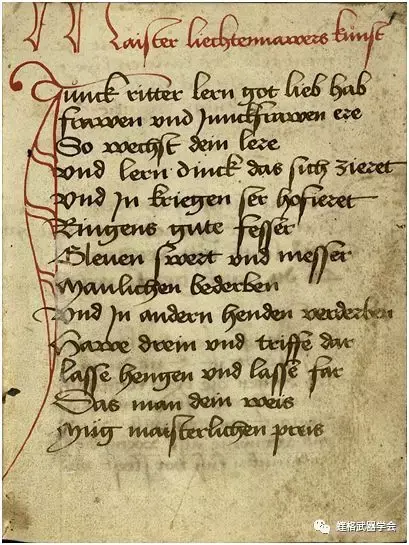 Maister liechtennawers kunst
Iunck ritter lern got lieb hab
frawen vnd Iunckfrawen ere
So wechst dein lere
vnd lern dinck das sich zieret
vnd In kriegen ser hofieret
Ringens gute fesser
Glenen swert vnd messer
Manlichen bederben
Vnd In andern henden verderben
Hawe drein vnd triffe dar
lasse hengen vnd lasse far
Das man dein weis
Müg maisterlichen preis
蝰格武器学会